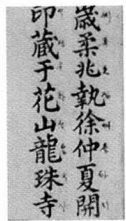 歲柔兆執徐仲夏開
印藏于花山龍珠寺